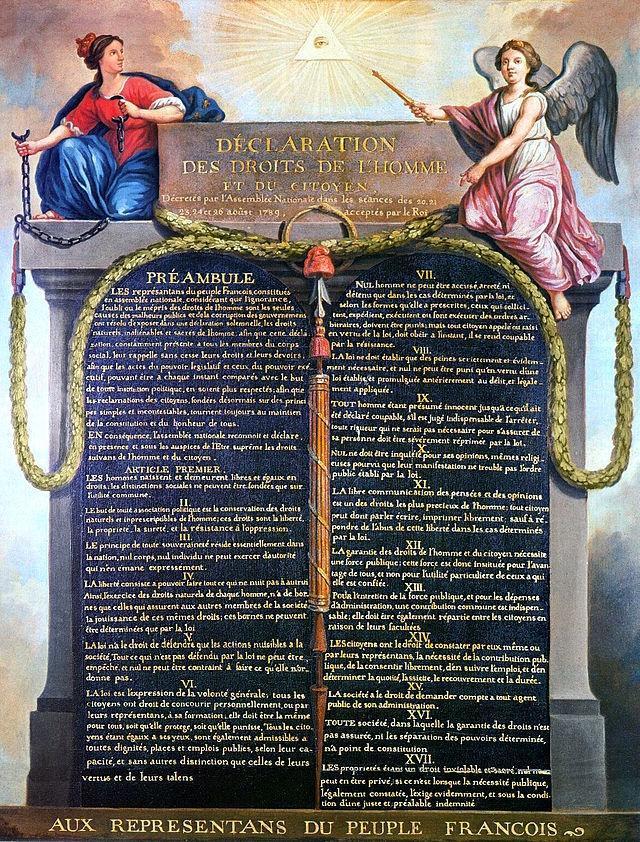 DÉCLARATION
DES DROITS DE L'HOMME
ET DU CITOYEN,
Décretés par l'Assemblée Nationale dans les séances des 20, 21
23, 24 et 26 aoûst 1789, acceptés par le Roi
PRÉAMBULE
LES représentans du peuple François, constitués
en assemblée nationale, considérant que l'ignorance,
l'oubli ou le mépris des droits de l'homme sont les seules
causes des malheurs publics et de la corruption des gouvernemens
ont résolu d'exposer dans une déclaration solemnelle, les droits
naturels, inaliénables et sacrés de l'homme; afin que cette décla
ration, constamment présente a tous les membres du corps
social, leur rappelle sans cesse leurs droits et leurs devoirs;
afin que les actes du pouvoir legislatif et ceux du pouvoir exé
cutif, pouvant être a chaque instant comparés avec le but
de toute institution politique, en soient plus respectés; afin que
les reclamations des citoyens, fondées désormais sur des princi
pes simples et incontestables, tournent toujours au maintien
de la constitution et du bonheur de tous.
EN conséquence, l'assemblée nationale reconnoit et déclare,
en presence et sous les auspices de l'Etre suprême les droits
suivans de l'homme et du citoyen.
ARTICLE PREMIER.
LES hommes naissent et demeurent libres et égaux en
droits; les distinctions sociales ne peuvent être fondées que sur
l'utilité commune.
II.
LE but de toute association politique est la conservation des droits
naturels et inprescriptibles de l'homme; ces droits sont la liberté,
la propriété, la sureté, et la résistance à l'oppression.
III.
LE principe de toute souveraineté réside essentiellement dans
la nation, nul corps, nul individu ne peut exercer d'autorité
qui n'en émane expressement.
IV.
LA liberté consiste a pouvoir faire tout ce qui ne nuit pas à autrui
Ainsi, l'exercice des droits naturels de chaque homme, n'a de bor
nes que celles qui assurent aux autres membres de la société
la jouissance de ces mêmes droits; ces bornes ne peuvent
être déterminées que par la loi
V.
LA loi n'a le droit de défendre que les actions nuisibles a la
société, Tout ce qui n'est pas défendu par la loi ne peut être
empêché, et nul ne peut être contraint à faire ce qu'elle n'or
donne pas.
VI.
LA loi est l'expression de la volonté générale; tous les
citoyens ont droit de concourir personnellement, ou par
leurs représentans, à sa formation; elle doit être la même
pour tous, soit qu'elle protege, soit qu'elle punisse, Tous les cito
yens étant égaux a ses yeux, sont également admissibles a
toutes dignités, places et emplois publics, selon leur ca
pacité, et sans autres distinction que celles de leurs
vertus et de leurs talens
VII.
NUL homme ne peut être accusé, arreté ni
détenu que dans les cas déterminés par la loi, et
selon les formes qu'elle a prescrites, ceux qui sollici
tent, expédient, exécutent ou font exécuter des ordres ar
bitraires, doivent être punis; mais tout citoyen appelé ou saisi
en vertu de la loi, doit obéir a l'instant, il se rend coupable
par la résistance.
VIII.
LA loi ne doit établir que des peines strictement et évidem
ment nécessaire, et nul ne peut être puni qu'en vertu d'une
loi établie et promulguée antérierement au délit, et légale
ment appliquée.
IX.
TOUT homme étant présumé innocent jusqu'a ce qu'il ait
été déclaré coupable, s'il est jugé indispensable de l'arrêter,
toute rigueur qui ne serait pas nécessaire pour s'assurer de
sa personne doit être sévèrement réprimée par la loi.
X.
NUL ne doit être inquiété pour ses opinions, mêmes religi
euses pourvu que leur manifestation ne trouble pas l'ordre
public établi par la loi.
XI.
LA libre communication des pensées et des opinions
est un des droits les plus precieux de l'homme; tout citoyen
peut dont parler écrire, imprimer librement; sauf à ré
pondre de l'abus de cette liberté dans les cas déterminés
par la loi.
XII.
LA garantie des droits de l'homme et du citoyen nécessite
une force publique; cette force est donc instituée pour l'avan
tage de tous, et non pour l'utilité particuliere de ceux a qui
elle est confiée.
XIII.
POUR l'entretien de la force publique, et pour les dépenses
d'administration, une contribution commune est indispen
sable; elle doit être également répartie entre les citoyens en
raison de leurs facultées
XIV.
LES citoyens ont le droit de constater par eux même ou
par leurs représentans, la nécessité de la contribution pub
lique, de la consentir librement, d'en suivre l'emploi, et d'en
déterminer la quotité, l'assiette, le recouvrement et la durée.
XV.
LA société a le droit de demander compte a tout agent
public de son administration.
XVI.
TOUTE société, dans laquelle la garantie des droits n'est
pas assurée, ni les séparation des pouvoirs déterminée,
n'a point de constitution
XVII.
LES proprietés étant un droit inviolable et sacré, nul ne
peut en être privé, si ce n'est lorsque la nécessité publique,
légalement constatée, l'exige evidemment, et sous la condi
tion d'une juste et préalable indemnité
AUX REPRESENTANS DU PEUPLE FRANCOIS